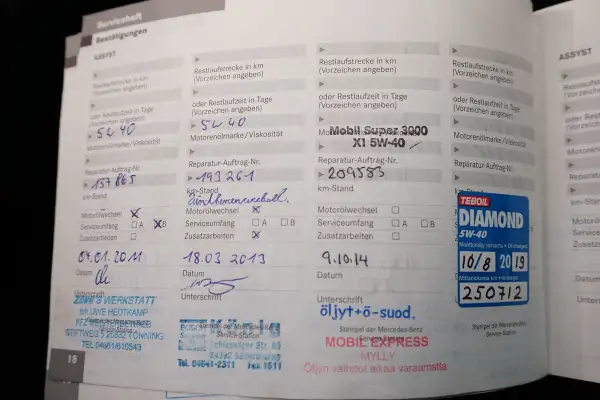 Serviceheft
Bestätigungen
ASSYST
Restlaufstrecke in km
(Vorzeichen angeben)
oder Restlaufzeit in Tage
(Vorzeichen angeben)
5W40
Motorenölmarke/Viskosität
Reparatur-Auftrag-Nr.
157 865
km-Stand
Motorölwechsel X
Serviceumfang A X B
Zusatzarbeiten
04.01.2011
Datum
Unterschrift
WERKSTATT
Inh UWE HEDTKAMP
TEL 04861/610543
18
Restlaufstrecke in km
(Vorzeichen angeben)
oder Restlaufzeit in Tage
(Vorzeichen angeben)
5W40
Motorenölmarke/Viskosität
Reparatur-Auftrag-Nr.
193261
km-Stand
Motorölwechsel X
Serviceumfang A B
Zusatzarbeiten X
18.03.2013
Datum
Unterschrift
BOSCH
Service-Station
Schleswiger Str. 85
Tel. 04841-2311 Fax 1511
Restlaufstrecke in km
(Vorzeichen angeben)
oder Restlaufzeit in Tage
(Vorzeichen angeben)
Mobil Super 3000
X1 5W-40
Reparatur-Auftrag-Nr.
209583
km-Stand
Motorölwechsel
Serviceumfang A B
Zusatzarbeiten
9.10.14
Datum
Unterschrift
öljyt+ö-suod.
Stempel der Mercedes-Benz
MOBIL EXPRESS
MYLLY
Öljyn vaihdot aikaa varaamatta
Restlaufstrecke in km
(Vorzeichen angeben)
oder Restlaufzeit in Tage
(Vorzeichen angeben)
Motorenölmarke/Viskosität
Reparatur-Auftrag-Nr.
TEBOIL
DIAMOND
5W-40
10/8 2019
250712
Stempel der Mercedes-Benz
Service-Station
ASSYST